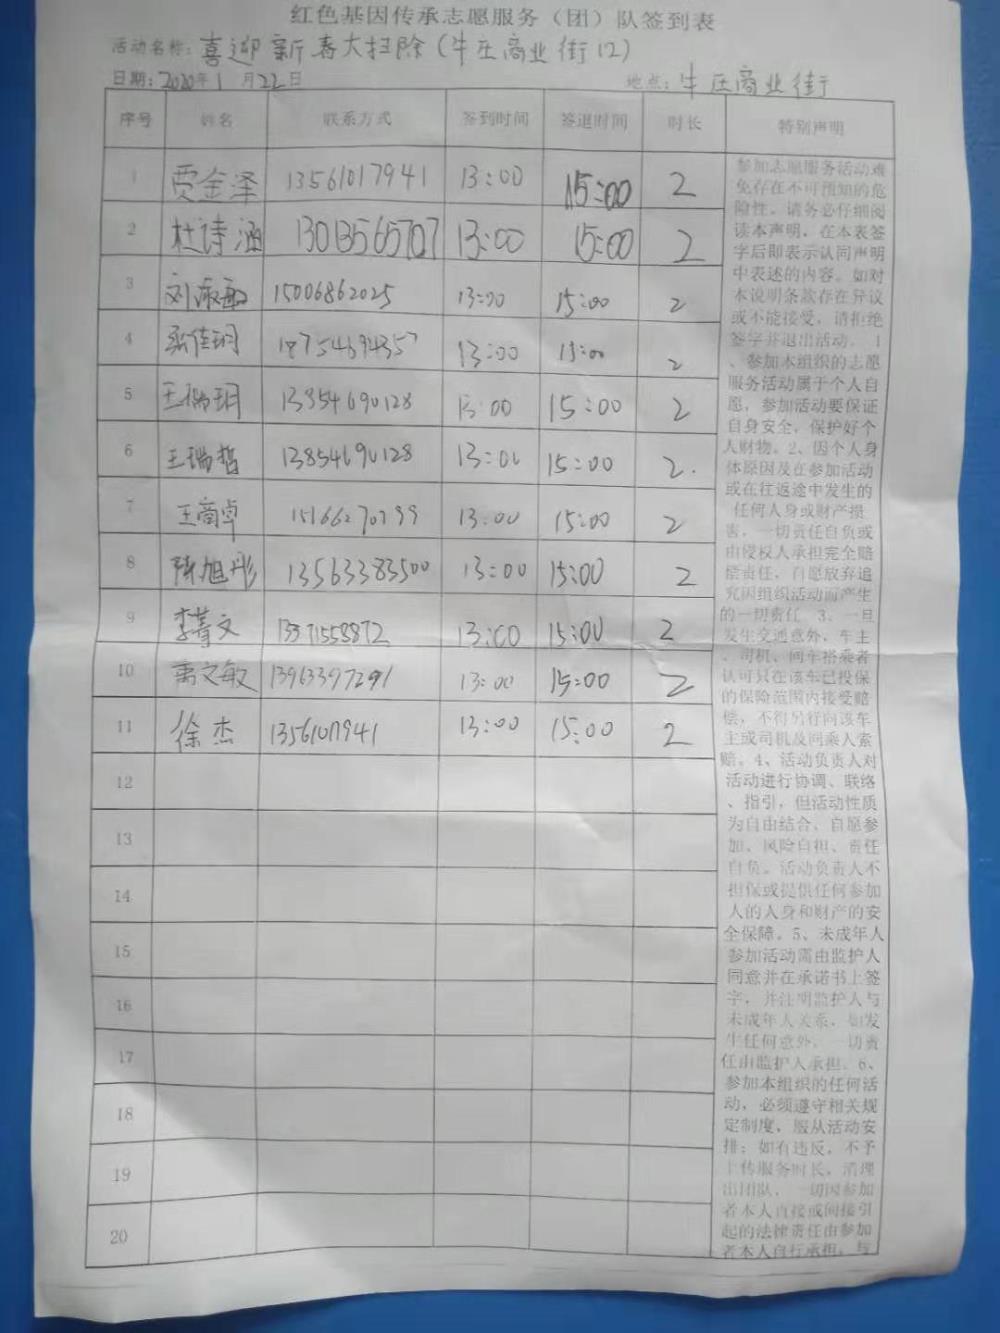 红色基因传承志愿服务（团）队签到表
活动名称：喜迎新春大扫除（牛庄商业街12）
日期：2020年1月22日 地点：牛庄商业街
序号 姓名 联系方式 签到时间 签退时间 时长 特别声明
1 贾金泽 13561017941 13:00 15:00 2
2 杜诗涵 13013565707 13:00 15:00 2
3 刘淑敏 15006862025 13:00 15:00 2
4 张佳玥 18754694357 13:00 15:00 2
5 王瑞玥 13854690128 13:00 15:00 2
6 王瑞哲 13854690128 13:00 15:00 2.
7 王商卓 15166270799 13:00 15:00 2
8 陈旭彤 13563383500 13:00 15:00 2
9 李菁文 13371558872 13:00 15:00 2
10 文敏 13963397291 13:00 15:00 2
11 徐杰 1356107941 13:00 15:00 2
12
13
14
15
16
17
18
19
20
参加志愿服务活动难
免存在不可预知的危
险性。请务必仔细阅
读本声明，在本表签
字后即表示认同声明
中表述的内容。如对
本说明条款存在异议
或不能接受，请拒绝
签字并退出活动。1
、参加本组织的志愿
服务活动属于个人自
愿，参加活动要保证
自身安全，保护好个
人财物。2、因个人身
体原因及在参加活动
或在往返途中发生的
任何人身或财产损
害，一切责任自负或
由侵权人承担完全赔
偿责任，自愿放弃追
究因组织活动而产生
的一切责任。3、一旦
发生交通意外，车主
、司机、同车搭乘者
认可只在该车已投保
的保险范围内接受赔
偿，不得另行向该车
主或司机及同乘人索
赔。4、活动负责人对
活动进行协调、联络
、指引，但活动性质
为自由结合、自愿参
加、风险自担、责任
自负。活动负责人不
担保或提供任何参加
人的人身和财产的安
全保障。5、未成年人
参加活动需由监护人
同意并在承诺书上签
字，并注明监护人与
未成年人关系，如发
生任何意外，一切责
任由监护人承担。6、
参加本组织的任何活
动，必须遵守相关规
定制度，服从活动安
排；如有违反，不予
上传服务时长，清理
出团队，一切因参加
者本人直接或间接引
起的法律责任由参加
者本人自行承担，与